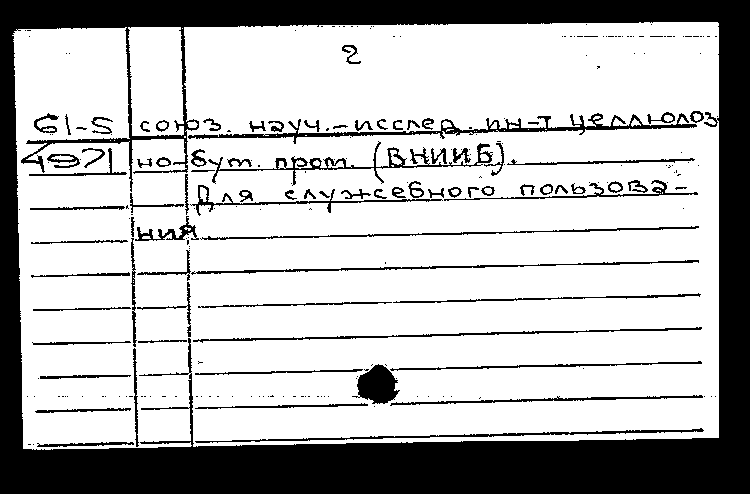 2
61-5 союз. науч.-исслед. ин-т целлюлоз
4971 но-бум. пром. (ВНИИБ).
Для служебного пользова-
ния.